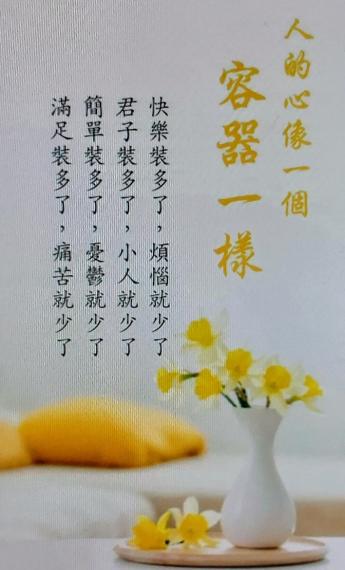 人的心像一個
容器一樣
快樂裝多了，煩惱就少了
君子裝多了，小人就少了
簡單裝多了，憂鬱就少了
滿足裝多了，痛苦就少了